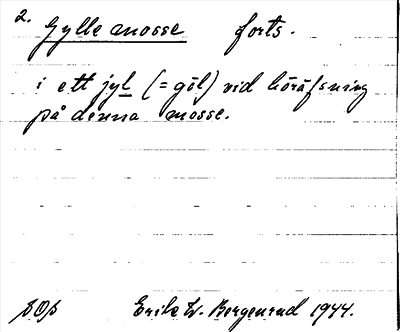 2. Gylle mosse forts.
i ett jyl (= göl) vid höräfsning
på denna mosse.
Erik W. Bergenrud 1944.